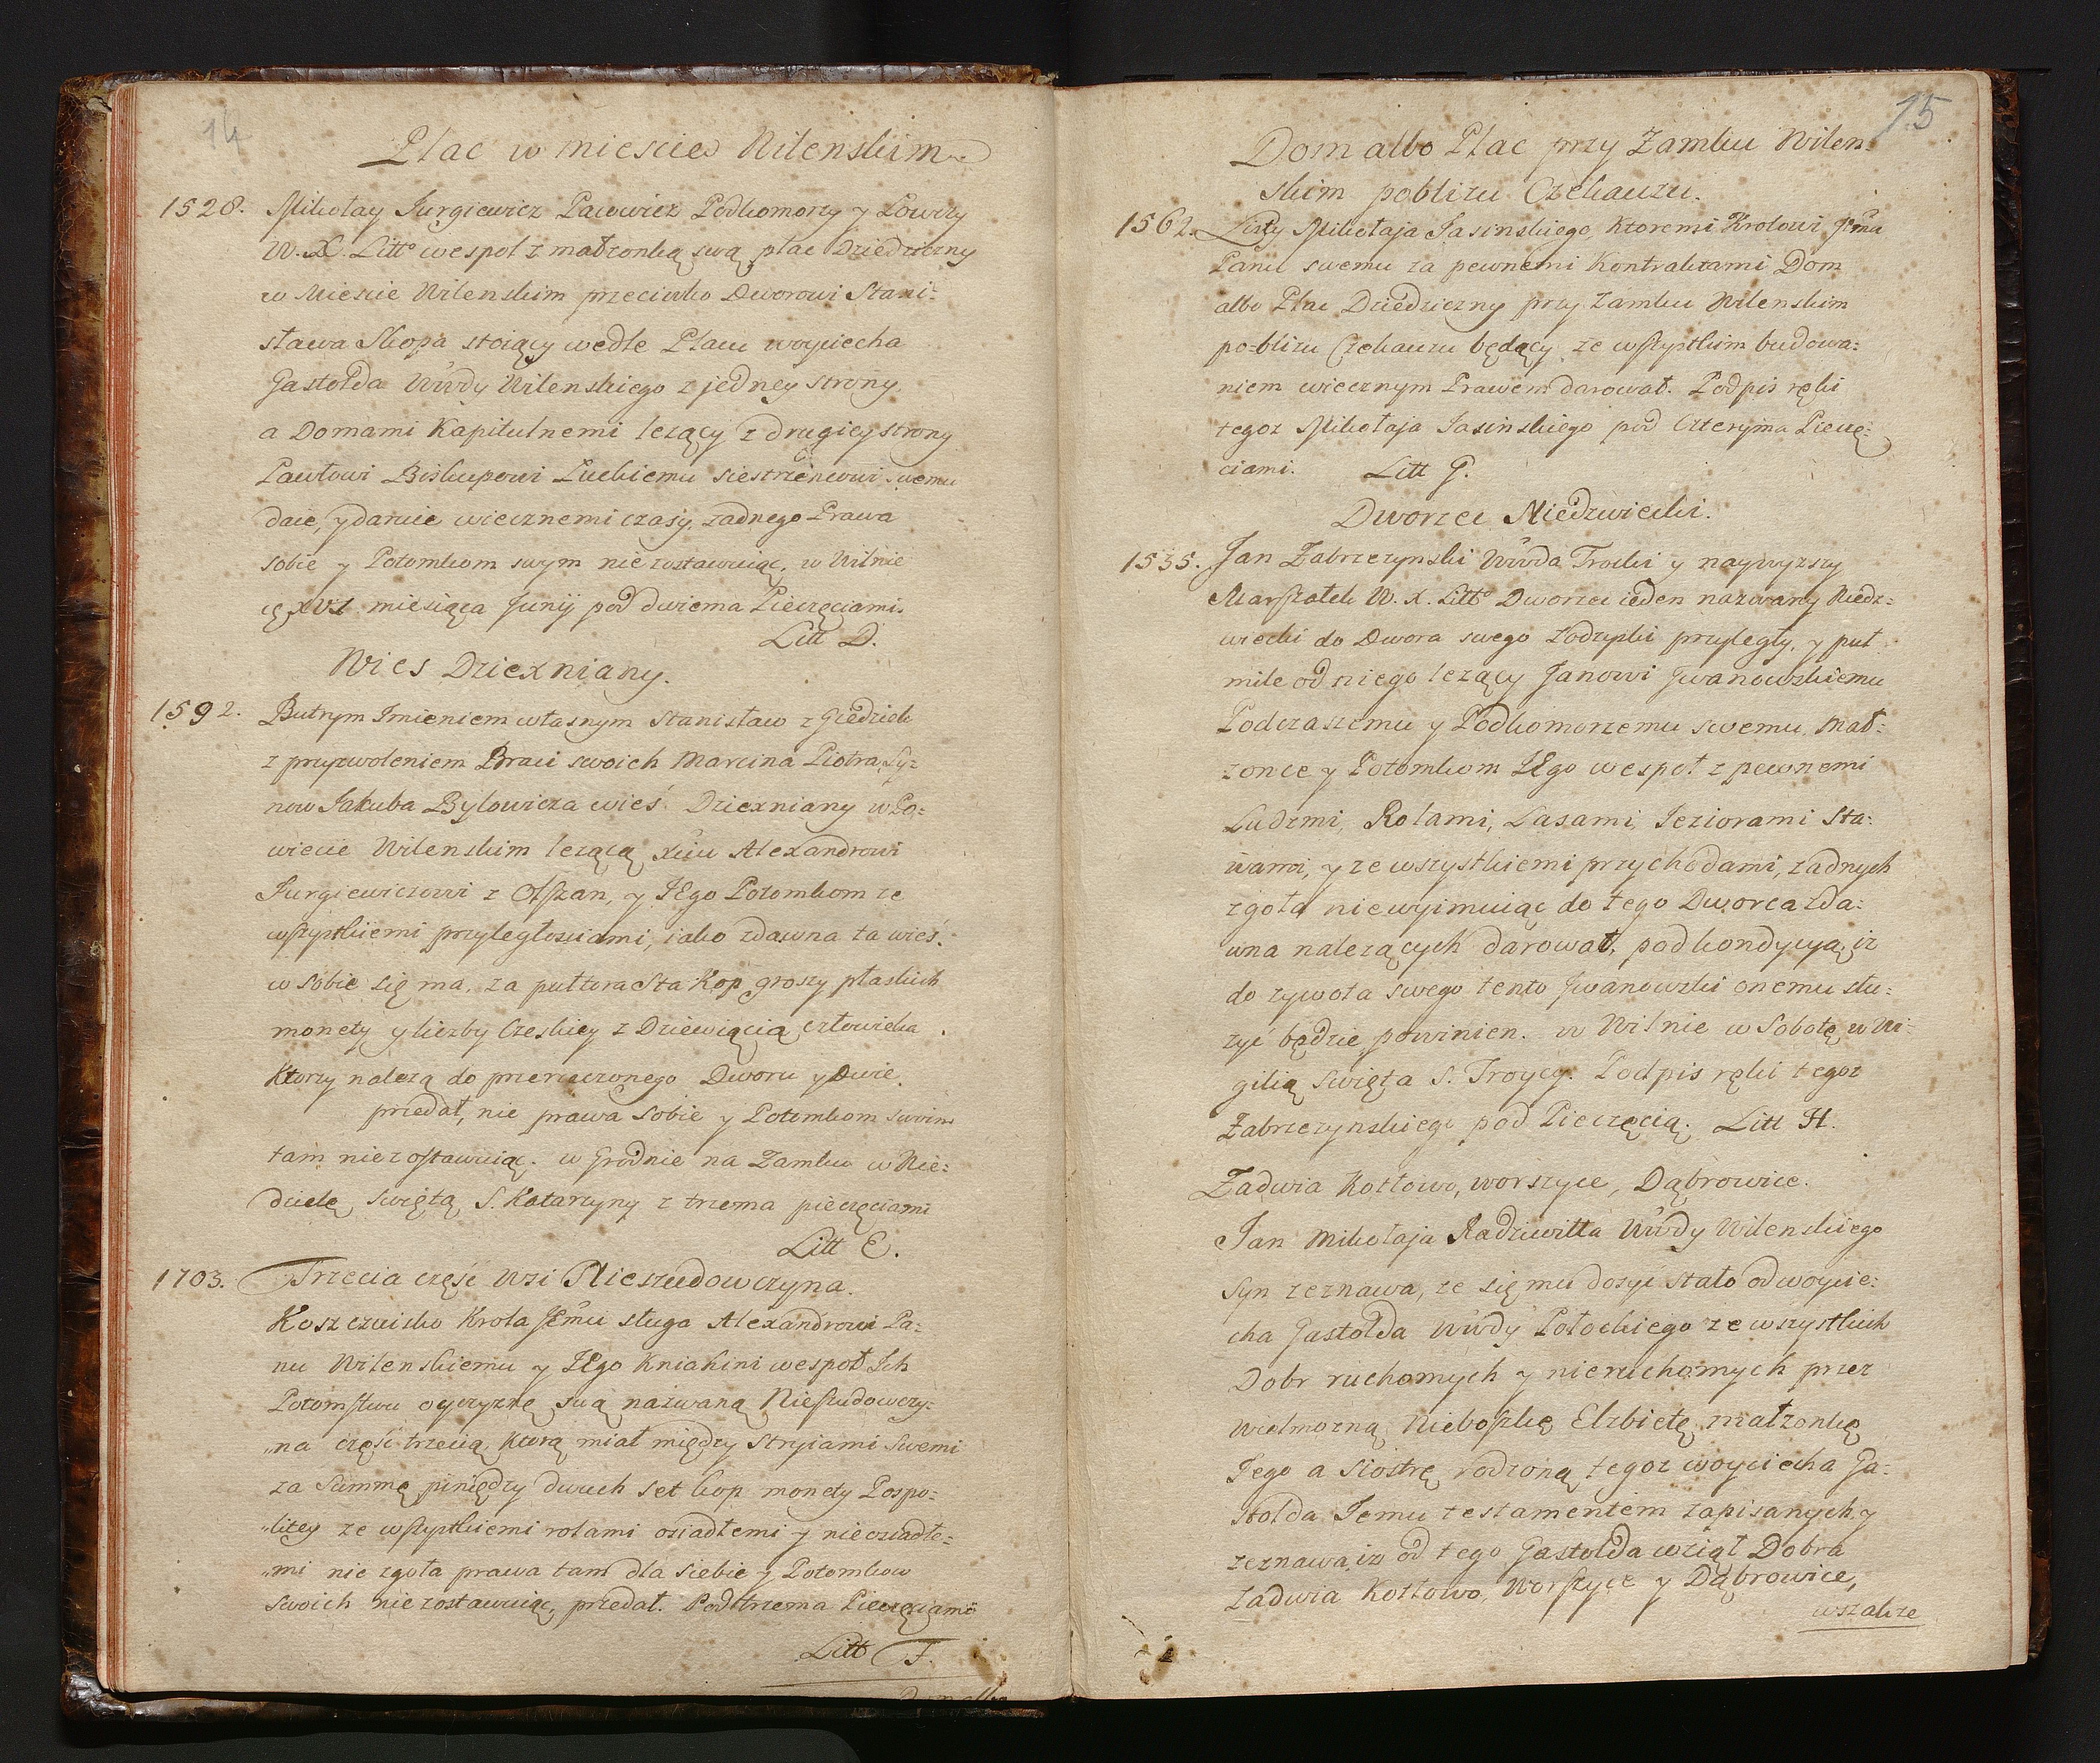 14
Plac w miescie Wilenskim
1528. Mikołay Jurgiewicz Pacowicz Podkomorzy y Łowczy
W. X. Litt° wespoł z małzonką swą plac Dziedziczny
w Miescie Wilenskim przeciwko Dworowi Stani:
sława Skopa stoiący wedle Placu woyciecha
Gastołda Wwdy Wilenskiego z jedney strony
a Domami Kapitulnemi lezący z drugiey strony
Pawłowi Biskupowi Łuckiemu siestrzencowi swemu
daie, y daruie wiecznemi czasy, zadnego Prawa
sobie y Potomkom swym nie zostawuiąc, w Wilnie
XVI miesiąca Junij pod dwiema Pieczęciami.
Litt D.
Wies Dziexniany.
1592. Butrym Imieniem własnym Stanisław z Giedziek
z przyzwoleniem Braci swoich Marcina Piotra Sy:
now Jakuba Bylowicza wieś Dziexniany w Po:
wiecie Wilenskim lezącą Xciu Alexandrowi
Jurgiewiczowi z Olszan, y JEgo Potomkom ze
wszystkiemi przyległosciami, iako zdawna ta wieś
w sobie się ma, za półtora Sta Kop groszy płaskich
monety y liczby Czeskiey z Dziewiącią człowieka
Ktorzy nalezą do przerzeczonego Dworu y Dwie
przedał, nic prawa sobie y Potomkom swoim
tam niezostawuiąc. w Grodnie na Zamku w Nie:
dzielę swiętą S. Katarzyny z trzema pieczęciami
Litt E.
1703. Trzecia część Wsi Nieszudowczyna.
Koszczuisko Krola JEmci sługa Alexandrowi Pa:
nu Wilenskiemu y JEgo Kniahini wespoł Ich
Potomstwu oyczyznę swą nazwaną Nieszudowczy:
„na część trzecią, ktorą miał między Stryiami Swemi
za Summę piniędzy dwuch set kop monety Pospo:
„litey ze wszystkiemi rolami osiadłemi y nieosiadłe:
„mi nic zgoła prawa tam dla siebie y Potomkow
swoich niezostawuiąc, przedał. Pod trzema Pieczęciami
Litt F.
Dom albo
15
Dom albo Plac przy Zamku Wilen:
skim poblizu Czekauzu.
1562. Listy Mikołaja Jasinskiego, Ktoremi Krolowi Jmci
Panu swemu za pewnemi Kontraktami Dom
albo Plac Dziedziczny przy Zamku Wilenskim
po-blizu Czekauzu będący ze wszystkim budowa:
niem wiecznym Prawem darował. Podpis ręki
tegoz Mikołaja Jasinskiego pod Czteryma Pieczę:
ciami. Litt G.
Dworzec Niedzwiecki.
1535. Jan Zabrzezynski Wwda Trocki y naywyzszy
Marszałek W. X. Litt° Dworzec ieden nazwany Niedz:
wiecki do Dwora swego Zodzyski przyległy, y puł
mile od niego lezący Janowi Jwanowskiemu
Podczaszemu y Podkomorzemu swemu, Mał:
zonce y Potomkom JEgo wespoł z pewnemi
Ludzmi, Rolami, Lasami, Jeziorami Sta:
wami, y ze wszystkiemi przychodami, zadnych
zgoła niewyimuiąc do tego Dworca zda:
wna nalezących darował, pod kondycyą, iz
do zywota swego tento Jwanowski onemu słu:
zyć będzie powinien. w Wilnie w Sobotę w Wi:
gilią Swięta S. Troycy. Podpis ręki tegoz
Zabrzezynskiego pod Pieczęcią. Litt H.
Zadwia Kotłowo, worszyce, Dąbrowice.
Jan Mikołaja Radziwiłła Wwdy Wilenskiego
Syn zeznawa, ze się mu dosyć stało od woycie:
cha Gastołda Wwdy Połockiego ze wszystkich
Dobr ruchomych y nieruchomych przez
Wielmozną Nieboszkę Elzbietę małzonkę
Jego a Siostrę rodzoną tegoz woyciecha Ga:
stołda Jemu testamentem zapisanych y
zeznawa, iz od tego Gastołda wziął Dobra
Zadwia Kotłowo, Worszyce y Dąbrowice,
wszakze